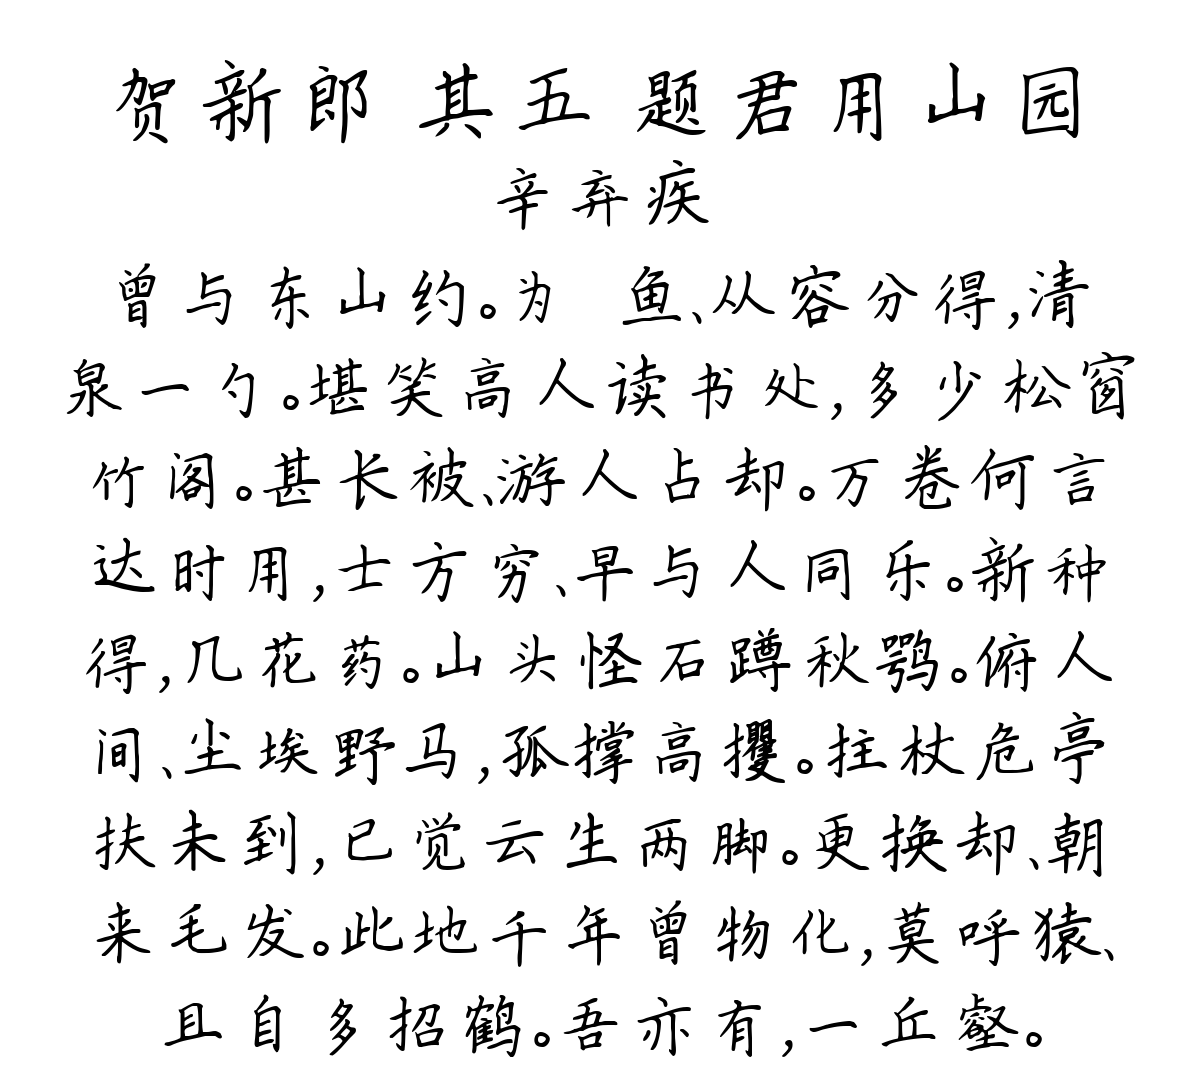 贺新郎 其五 题君用山园
辛弃疾
曾与东山约。为 鱼、从容分得,清
泉一勺。堪笑高人读书处,多少松窗
竹阁。甚长被、游人占却。万卷何言
达时用,士方穷、早与人同乐。新种
得,几花药。山头怪石蹲秋鹗。俯人
间、尘埃野马,孤撑高攫。拄杖危亭
扶未到,已觉云生两脚。更换却、朝
来毛发。此地千年曾物化,莫呼猿、
且自多招鹤。吾亦有,一丘壑。